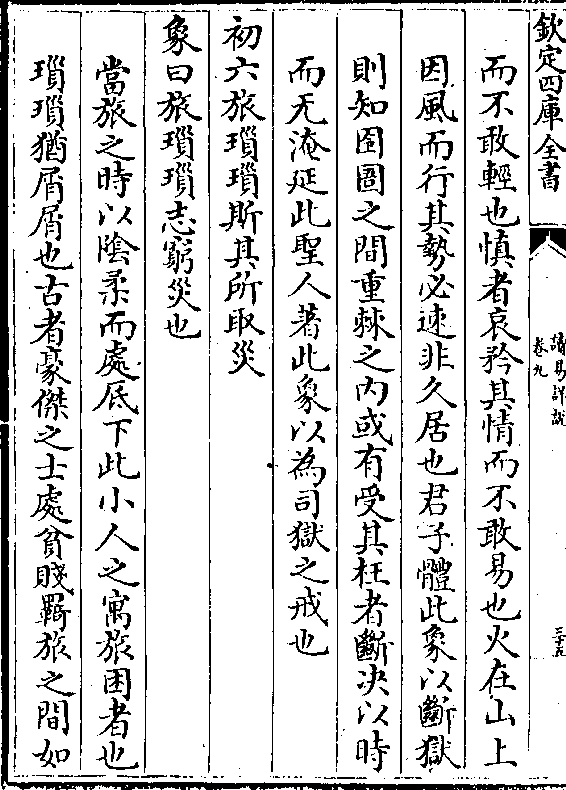 欽定四庫全書
讀易詳說
卷九
三十五
而不敢輕也慎者哀矜其情而不敢易也火在山上
因風而行其勢必速非久居也君子體此象以斷獄
則知囹圄之間重棘之内或有受其枉者斷决以時
而无淹延此聖人著此象以為司獄之戒也
初六旅瑣瑣斯其所取災
象曰旅瑣瑣志窮災也
當旅之時以隂柔而處底下此小人之寓旅困者也
瑣瑣猶屑屑也古者豪傑之士處貧賤羈旅之間如